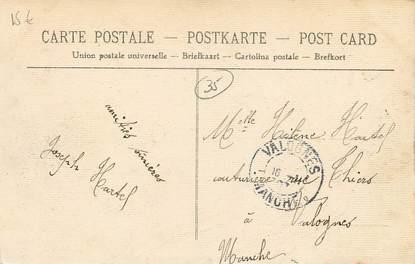 15 €
CARTE POSTALE — POSTKARTE — POST CARD
Union postale universelle — Briefkaart — Cartolina postale — Brefkort
35
amitiés sincères
Joseph
Hartel
Melle Hélène Hartel
couturière rue Thiers
à
Valognes
Manche
VALOGNES
16
MANCHE